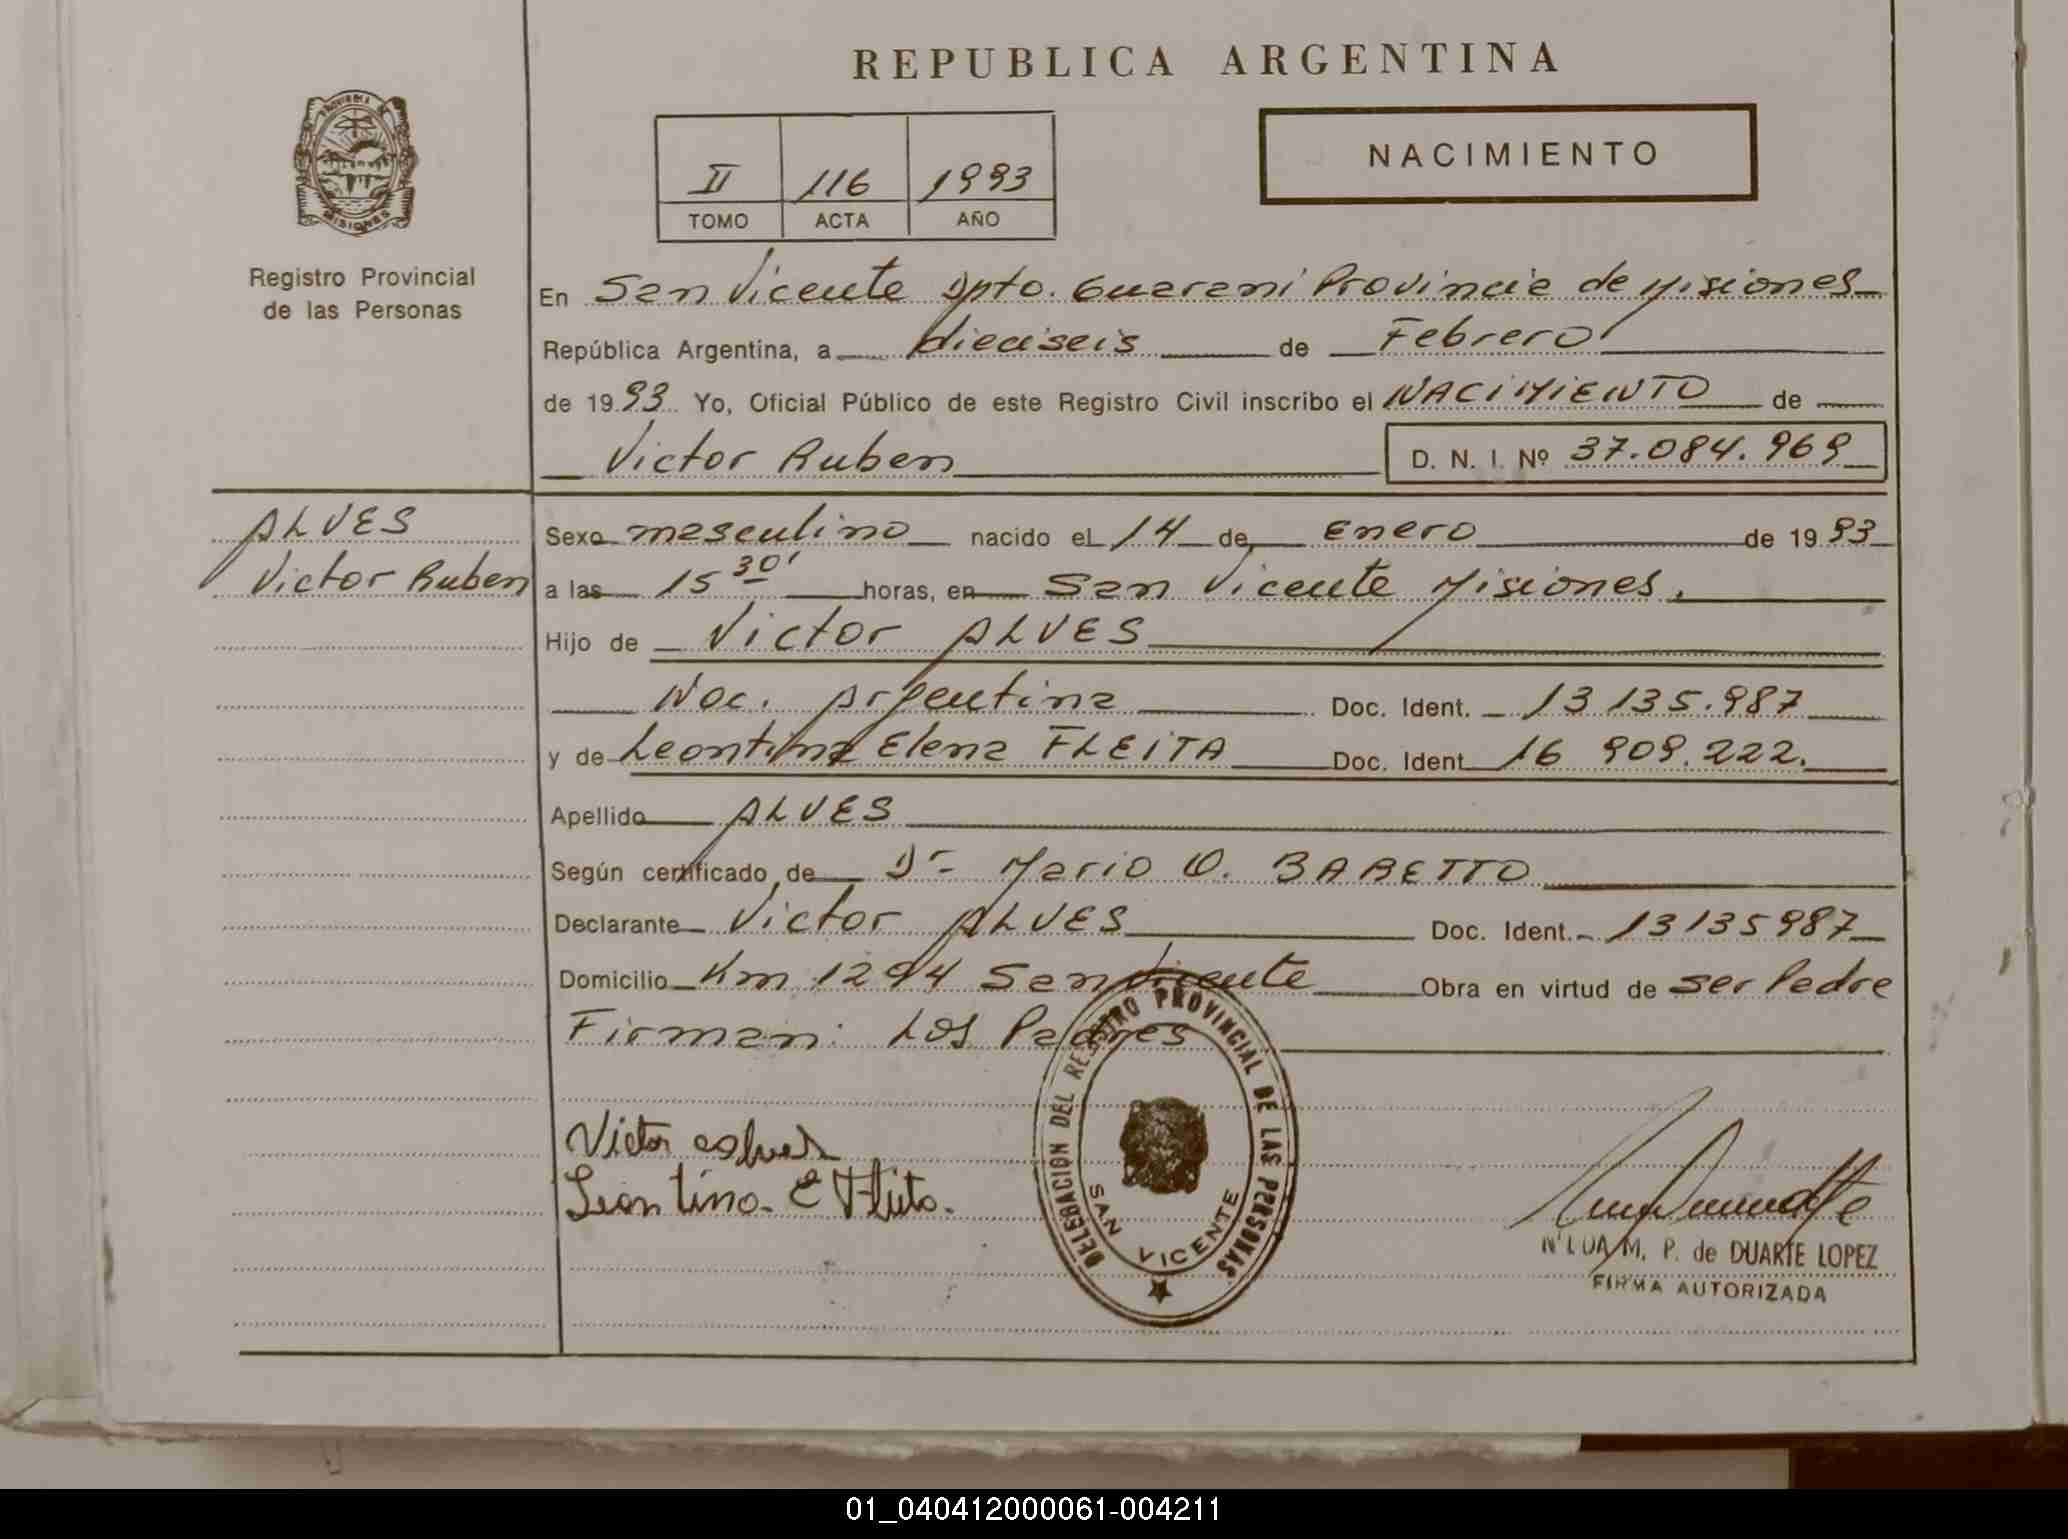 REPUBLICA ARGENTINA
PROVINCIA DE
MISIONES
Registro Provincial
de las Personas
II 116 1993
TOMO ACTA AÑO
NACIMIENTO
En San Vicente Dpto. Guarani Provincia de Misiones
República Argentina, a dieciseis de Febrero
de 1993 Yo, Oficial Público de este Registro Civil inscribo el NACIMIENTO de
Victor Ruben D. N. I. Nº 37.084.969
ALVES
Victor Ruben
Sexo masculino nacido el 14 de Enero de 1993
a las 15 30' horas, en San Vicente Misiones.
Hijo de Victor ALVES
Nac. Argentina Doc. Ident. 13 135.987
y de Leontina Elena FLEITA Doc. Ident 16 909.222.
Apellido ALVES
Según certificado de Dr Mario O. BARETTO
Declarante Victor ALVES Doc. Ident. 13135987
Domicilio Km 1294 San Vicente Obra en virtud de ser Padre
Firman: Los Padres
Victor
Leontina E Fleita.
DELEGACION DEL REGISTRO PROVINCIAL DE LAS PERSONAS
SAN VICENTE
M. P. de DUARTE LOPEZ
FIRMA AUTORIZADA
01_040412000061-004211